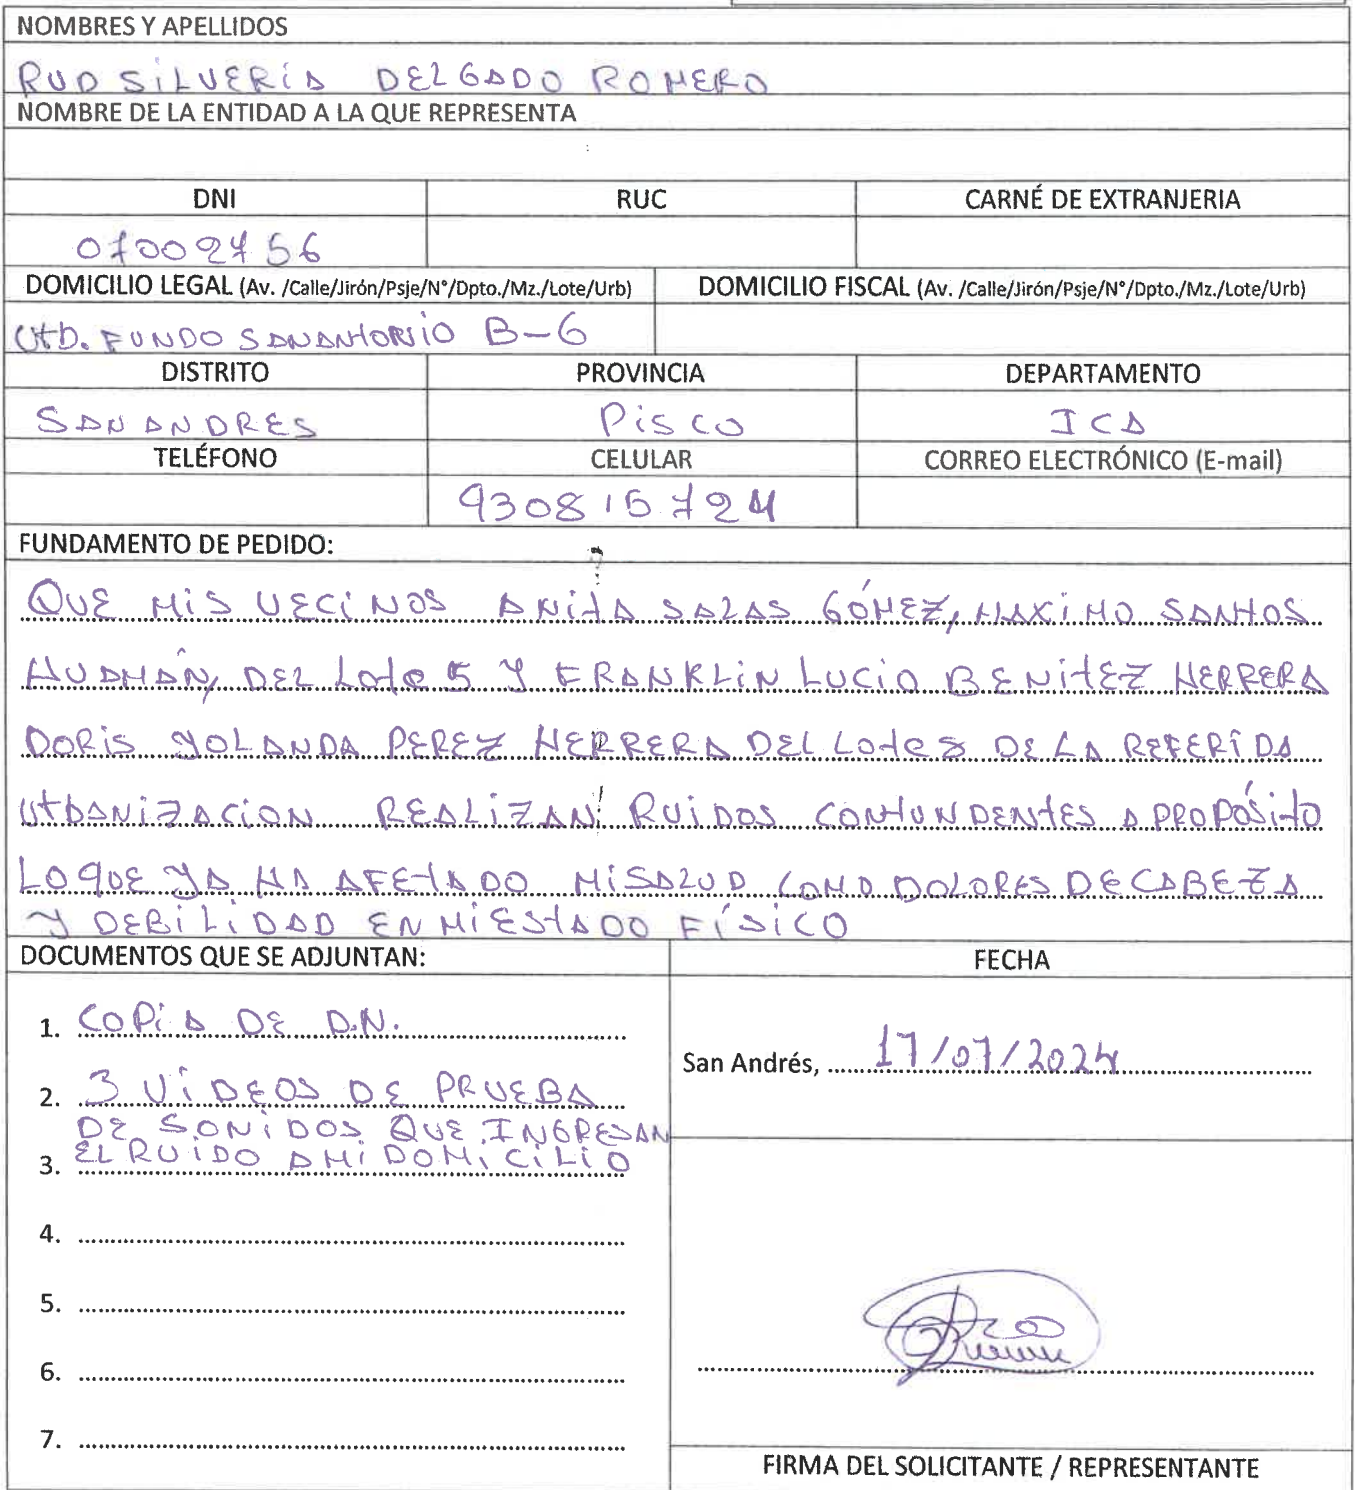 NOMBRES Y APELLIDOS
RUD SILVERIA DELGADO ROMERO
NOMBRE DE LA ENTIDAD A LA QUE REPRESENTA
DNI RUC CARNÉ DE EXTRANJERIA
07002756
DOMICILIO LEGAL (Av. /Calle/Jirón/Psje/N°/Dpto./Mz./Lote/Urb) DOMICILIO FISCAL (Av. /Calle/Jirón/Psje/N°/Dpto./Mz./Lote/Urb)
Urb. FUNDO SANANTONIO B-6
DISTRITO PROVINCIA DEPARTAMENTO
SAN ANDRES PISCO ICA
TELÉFONO CELULAR CORREO ELECTRÓNICO (E-mail)
930815724
FUNDAMENTO DE PEDIDO:
QUE MIS VECINOS ANITA SALAS GÓMEZ, MAXIMO SANTOS
HUAMÁN, DEL Lote 5 Y FRANKLIN LUCIO BENITEZ HERRERA
DORIS YOLANDA PEREZ HERRERA DEL Lote 8 DE LA REFERIDA
UrbANIZACION REALIZAN RUIDOS CONTUNDENTES A PROPÓSITO
LO QUE YA HA AFETADO MI SALUD COMO DOLORES DE CABEZA
Y DEBILIDAD EN MI ESTADO FÍSICO
DOCUMENTOS QUE SE ADJUNTAN: FECHA
1. COPIA DE D.N.
San Andrés, 17/07/2024
2. 3 VIDEOS DE PRUEBA
DE SONIDOS QUE INGRESAN
3. EL RUIDO A MI DOMICILIO
4.
5.
6.
7.
FIRMA DEL SOLICITANTE / REPRESENTANTE